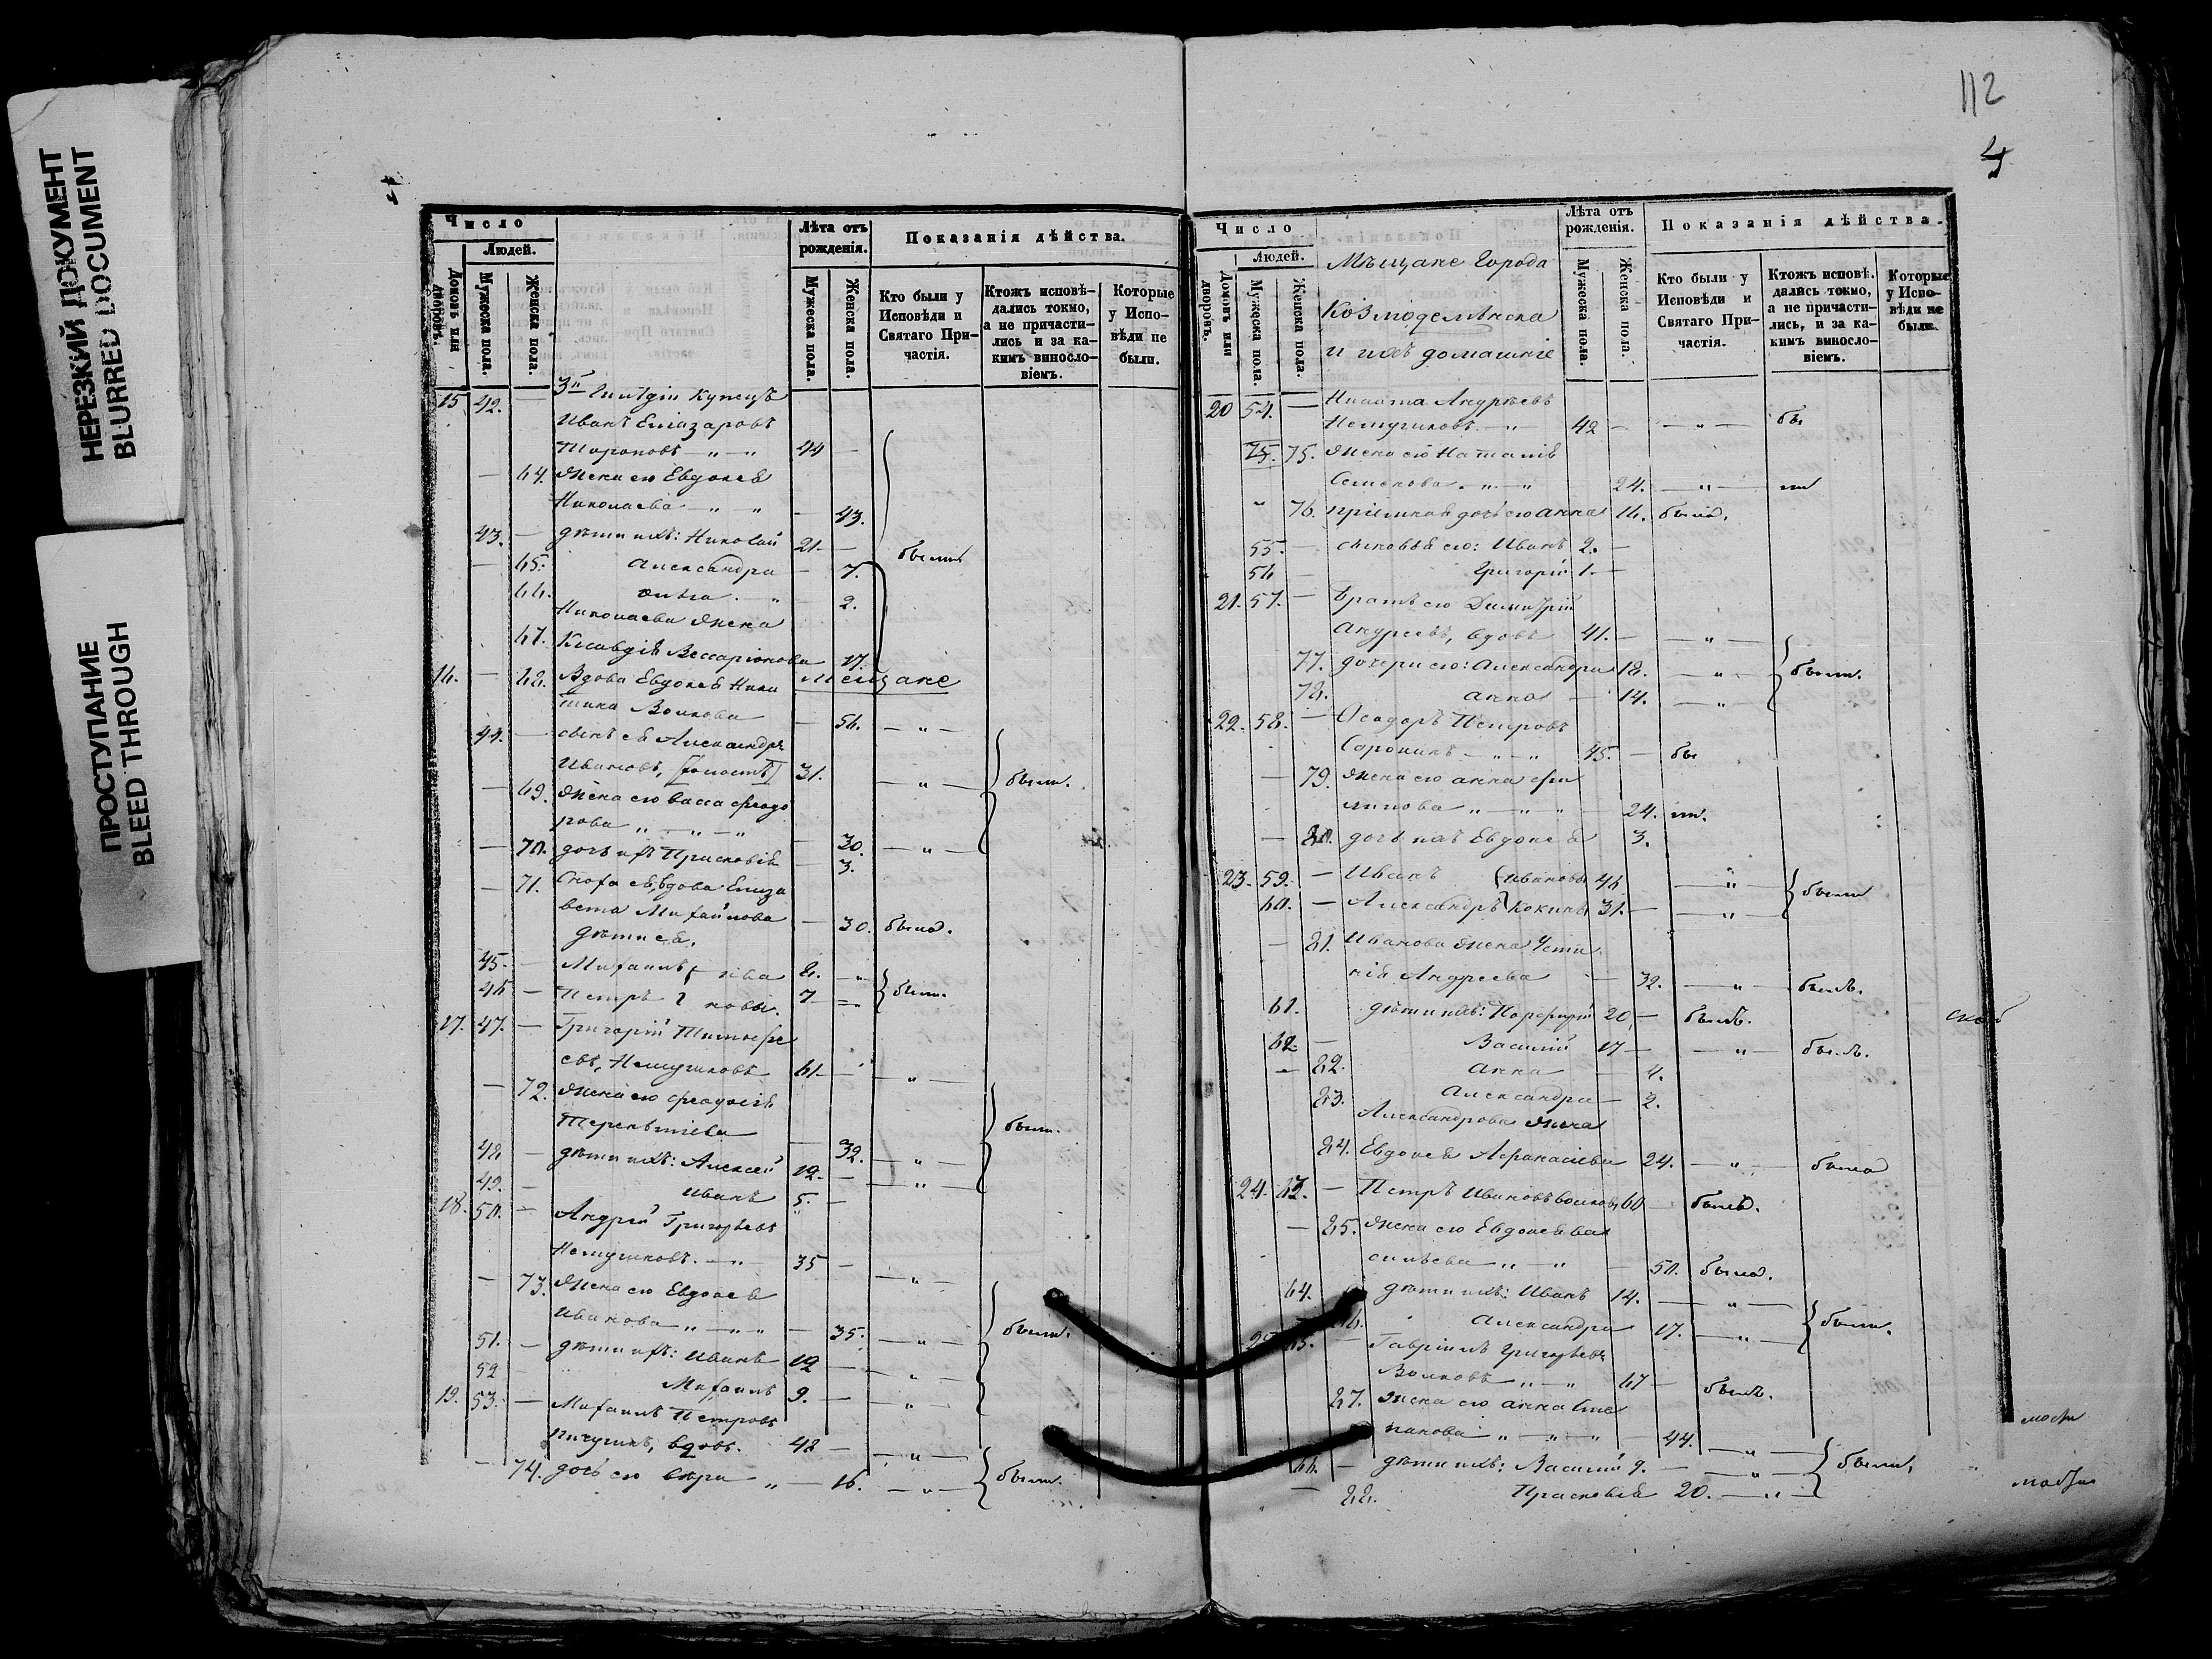 НЕРЕЗКИЙ ДОКУМЕНТ
BLURRED DOCUMENT
ПРОСТУПАНИЕ
BLEED THROUGH
Число
Людей.
Домовъ или дворовъ.
Мужеска пола.
Женска пола.
Лѣта отъ рожденія.
Мужеска пола.
Женска пола.
Показанія дѣйства.
Кто были у Исповѣди и Святаго При-частія.
Ктожъ исповѣ-дались токмо, а не причасти-лись и за ка-кимъ винosло-віемъ.
Которые у Испо-вѣди не были.
15 42. — 3й Гильдіи Купецъ
Иванъ Елизаровъ
Торсковъ — „ — „ 44 —
— 64. Жена его Евдокея
Николаева — „ „ — 43.
43. — дѣти ихъ: Николай 21. — были
— 65. Александра — 7.
66. 2.
Николаева Жена
67. Клавдія Виссаріонова 17.
Мещане
16. — 68. Вдова Евдокея Ники
тина Волкова — 56. — „ —
44. — сынъ ея Александръ
Ивановъ, [холостъ] 31. — „ — были.
— 69. Жена его Васса Феодо
рова „ — „ — „ — 30. — „ —
— 70. дочь ихъ Прасковія — 3.
— 71. Сноха ея, вдова Елиза
вета Михайлова — 30. была.
дѣти ея.
45. — Михаилъ 8. — „
46 — Петръ новы. 7 были.
17. 47. — Григорій Тимофе
евъ, Немчиновъ 61. — „ —
— 72. Жена его Феодосія
Терентіева — 32. — „ — были.
48 — дѣти ихъ: Алексей 12. — — „ —
49. — Иванъ 5. —
18. 50. — Андрей Григорьевъ
Немчиновъ. — „ 35 — — „ —
— 73. Жена его Евдокея
Иванова „ — „ — „ — 35. — „ — были.
51. — дѣти ихъ: Иванъ 12 — — „ —
52 — Михаилъ 9. — — „ —
19. 53. — Михаилъ Петровъ
Пичугинъ, вдовъ. 48 — — „ —
— 74. дочь его Вѣра „ — 16. — „ — были.
112
4
Число
Людей.
Домовъ или дворовъ.
Мужеска пола.
Женска пола.
Мѣщане Города
Козмодемьянска
и ихъ домашніе
Лѣта отъ рожденія.
Мужеска пола.
Женска пола.
Показанія дѣйства.
Кто были у Исповѣди и Святаго При-частія.
Ктожъ исповѣ-дались токмо, а не причасти-лись, и за ка-кимъ винosло-віемъ.
Которые у Испо-вѣди не были.
20 54. — Никита Андреевъ
Немчиновъ — „ — 42 — — „ — бы
75. 75. Жена его Наталія
Семенова „ — „ 24. — „ — ли
„ 76. пріемная дочь его Анна 16. была.
55. — сыновья его: Иванъ 2. —
56 — Григорій 1. —
21. 57. — Братъ его Димитрій
Андреевъ, вдовъ 41. — — „ —
77. дочери его: Александра 18. — „ — были.
78. Анна — 14. — „ —
22. 58. — Феодоръ Петровъ
Сорокинъ — „ — „ 45. — бы
— 79. Жена его Анна Фи
липова „ — „ — „ — 24. ли.
— 80. дочь ихъ Евдокея 3.
23. 59. — Иванъ Ивановы 46 — „ — были
60. — Александръ Кокины 31. — — „ —
— 81. Иванова Жена Усти
нія Андреева — 32. — „ — была.
61. дѣти ихъ: Порфирій 20 — былъ.
62 — Василій 17 — — „ — былъ.
— 82. Анна — 4.
83. Александра — 2.
Александрова Жена
84. Евдокея Афанасіева 24. — „ — была
24. 63. — Петръ Ивановъ Волковъ 60 — былъ.
— 85. Жена его Евдокея Ва
сильева „ — „ — 50. была.
64. — дѣти ихъ: Иванъ 14. — „ —
86. Александра 17. — „ — были.
25 65. — Гавріилъ Григорьевъ
Волковъ „ — „ 67 — былъ.
87. Жена его Анна Сте
панова „ — „ — „ — 44. — „ —
66. — дѣти ихъ: Василій 9. — — „ — были.
— 88. Прасковія 20. — „ —